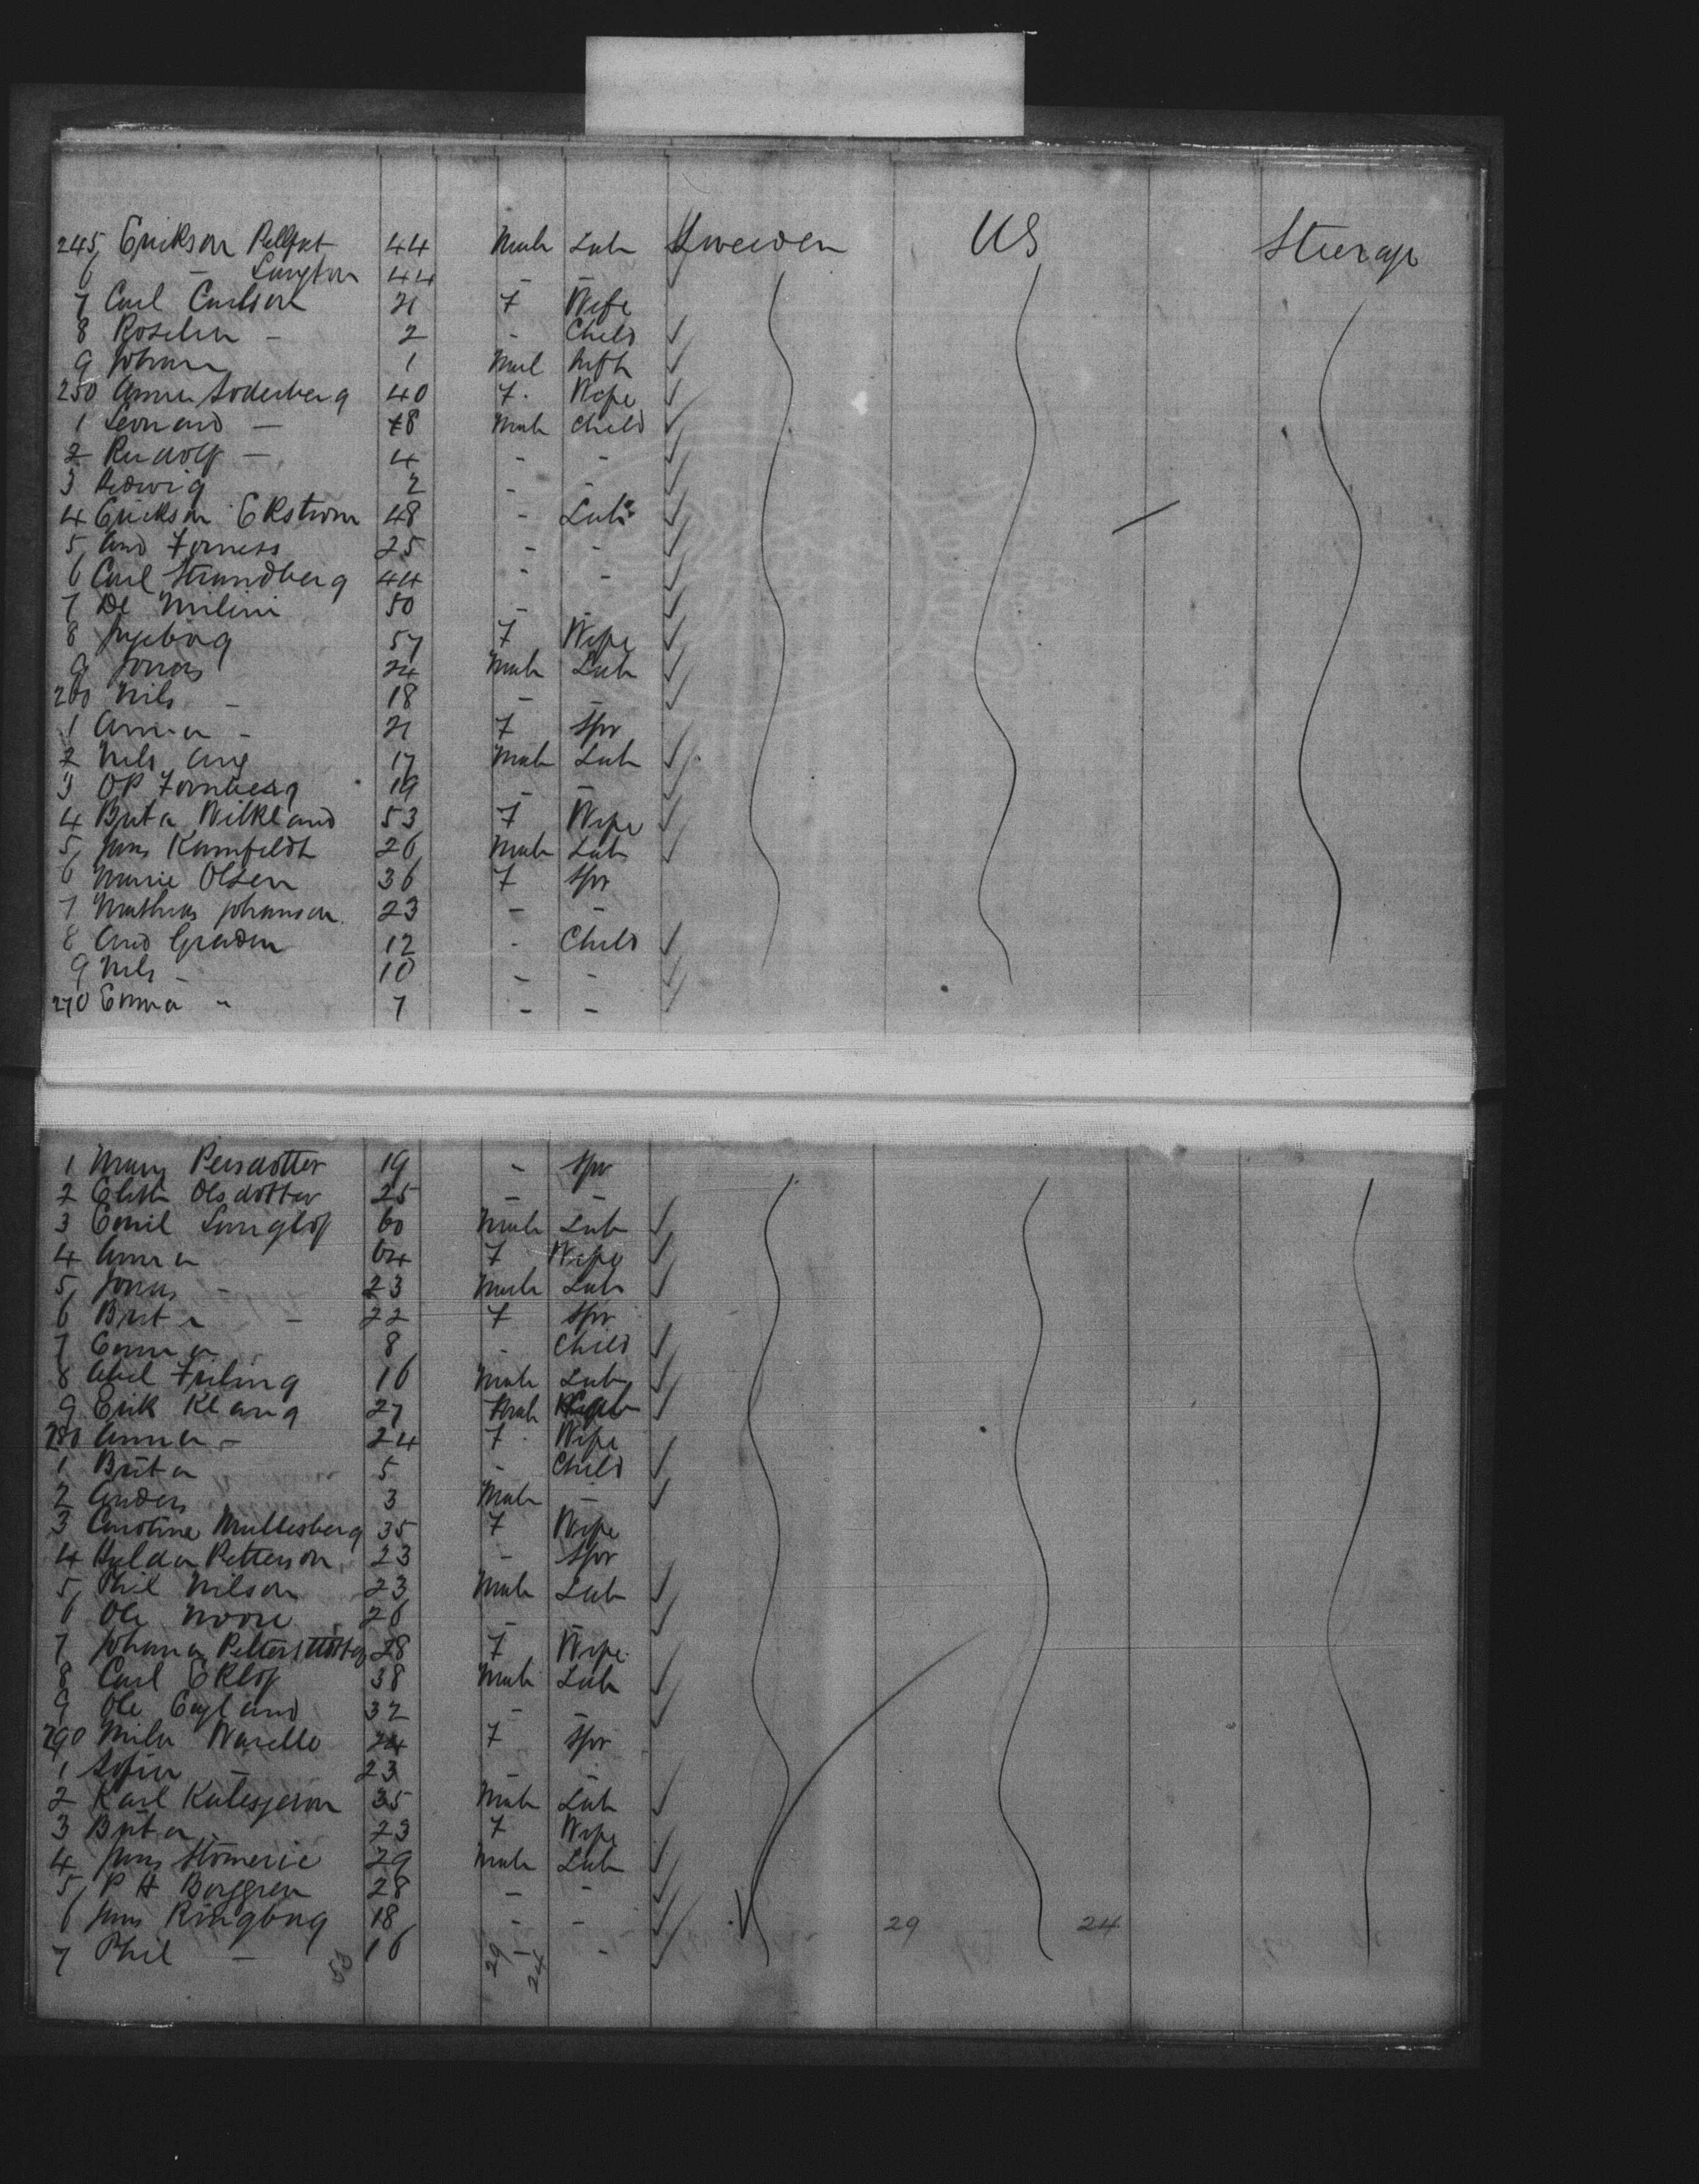 245 Erickson Pellfut 44 Male Lab Sweden US Steerage
6 - Langton 44 -
7 Carl Carlson 21 F Wife
8 Roselin - 2 - Child
9 Johan 1 Mal Inft
250 Anna Soderberg 40 F. Wife
1 Leonard - 8 Male Child
2 Rudolf - 4 - -
3 Hedwig 2 - -
4 Erickson Ekstrom 48 - Lab
5 And Forness 25 - -
6 Carl Strandberg 44 - -
7 De Milini 50 - -
8 Ingeborg 57 F Wife
9 Jonas 24 Male Lab
260 Nils - 18 - -
1 Anna - 21 F Spr
2 Nils Aug 17 Male Lab
3 OP Fornberg 19 - -
4 Brita Wilkland 53 F Wife
5 Jons Kamfeldt 26 Male Lab
6 Marie Olsen 36 F Spr
7 Mathias Johanson 23 - -
8 And Graden 12 - Child
9 Nils - 10 - -
270 Emma " 7 - -
1 Mary Persdotter 19 - Spr
2 Olsdotter 25 - -
3 Emil Langlof 60 Male Lab
4 Anna 64 F Wife
5 Jonas - 23 Male Lab
6 Brita - 22 F Spr
7 Emma 8 - Child
8 Abel Friling 16 Male Lab
9 Erik Klang 27 Male
280 Anna - 24 F Wife
1 Brita 5 - Child
2 Anders 3 Male -
3 Carolina Mullesberg 35 F Wife
4 Hulda Petterson 23 - Spr
5 Phil Nilson 23 Male Lab
6 Ole Moore 26 - -
7 Johanna 28 F Wife
8 Carl Eklof 38 Male Lab
9 Ole England 32 - -
290 Mila Warello 24 F Spr
1 Sofia - 23 - -
2 Karl Katesjeron 35 Male Lab
3 Brita 23 F Wife
4 Jons Stomerie 29 Male Lab
5 P H Borggren 28 - -
6 Jons Ringborg 18 - - 29 24
7 Phil - 16 - -
53 29 24